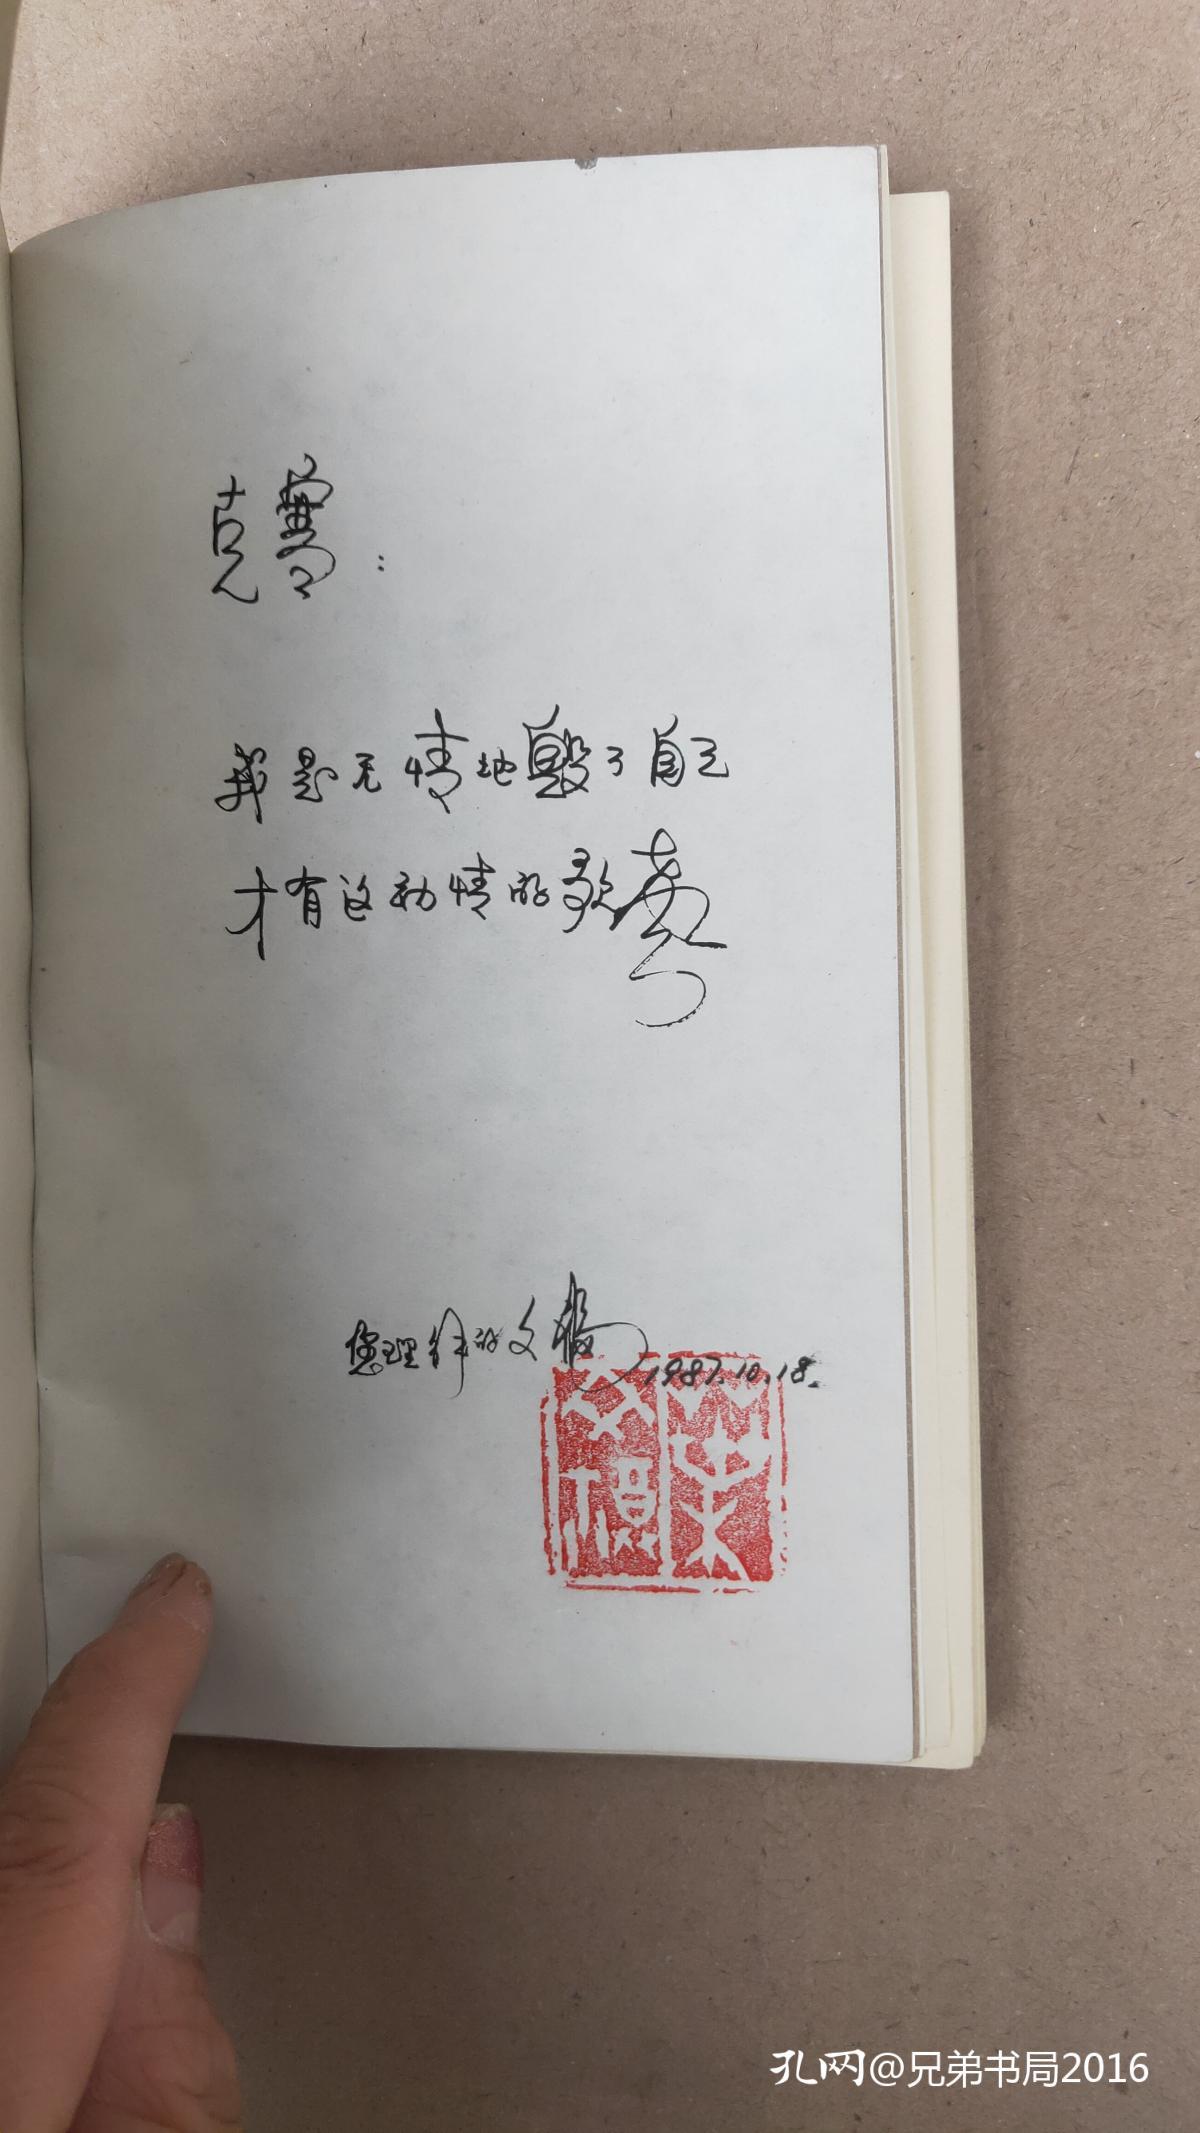 克：
我是无情地毁了自己
才有这动情的歌声
您理解的文福 1987.10.18.
葉文福
孔网@兄弟书局2016